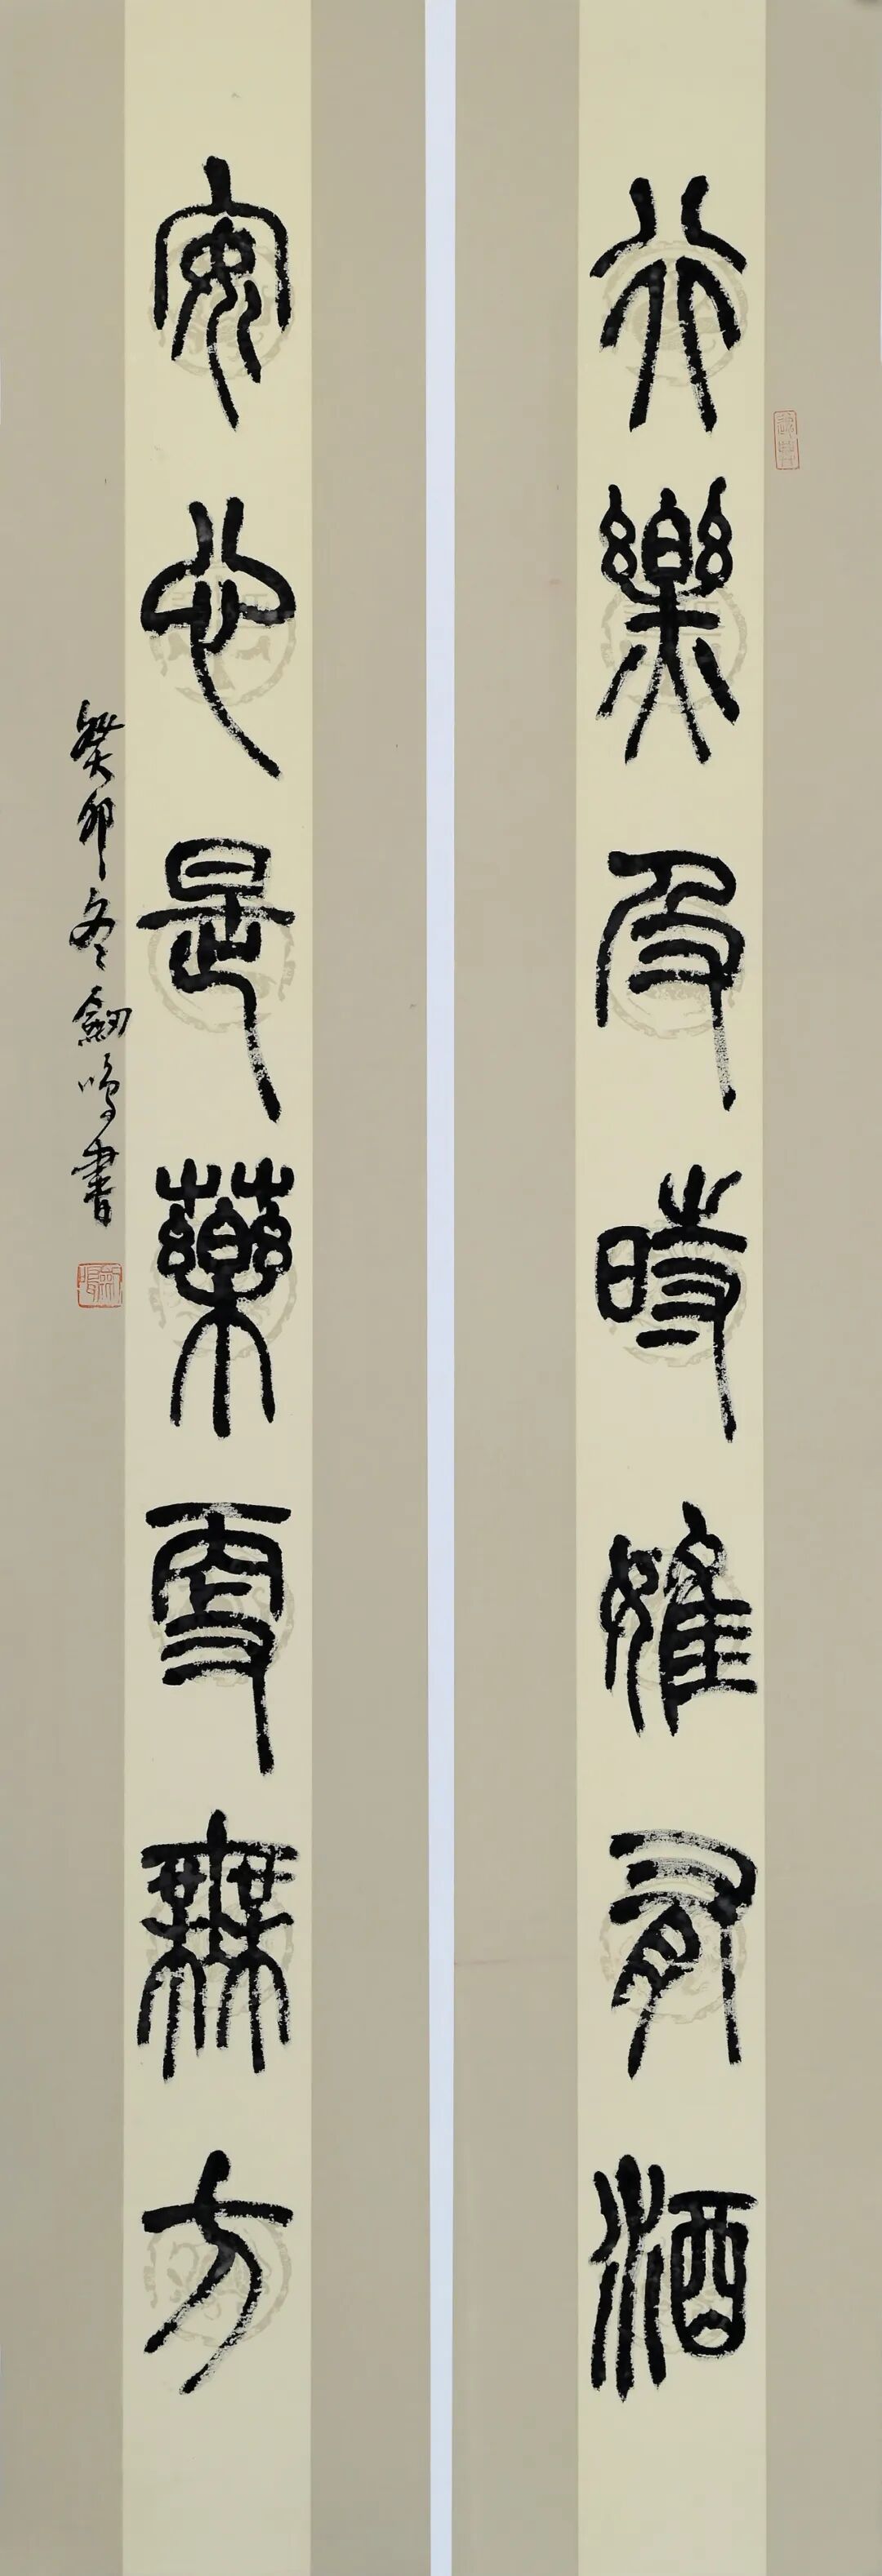 行樂及時雖有酒
安心是藥更無方
癸卯冬劍鳴書
劍鳴